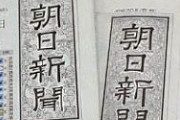 朝日新聞
朝日新聞